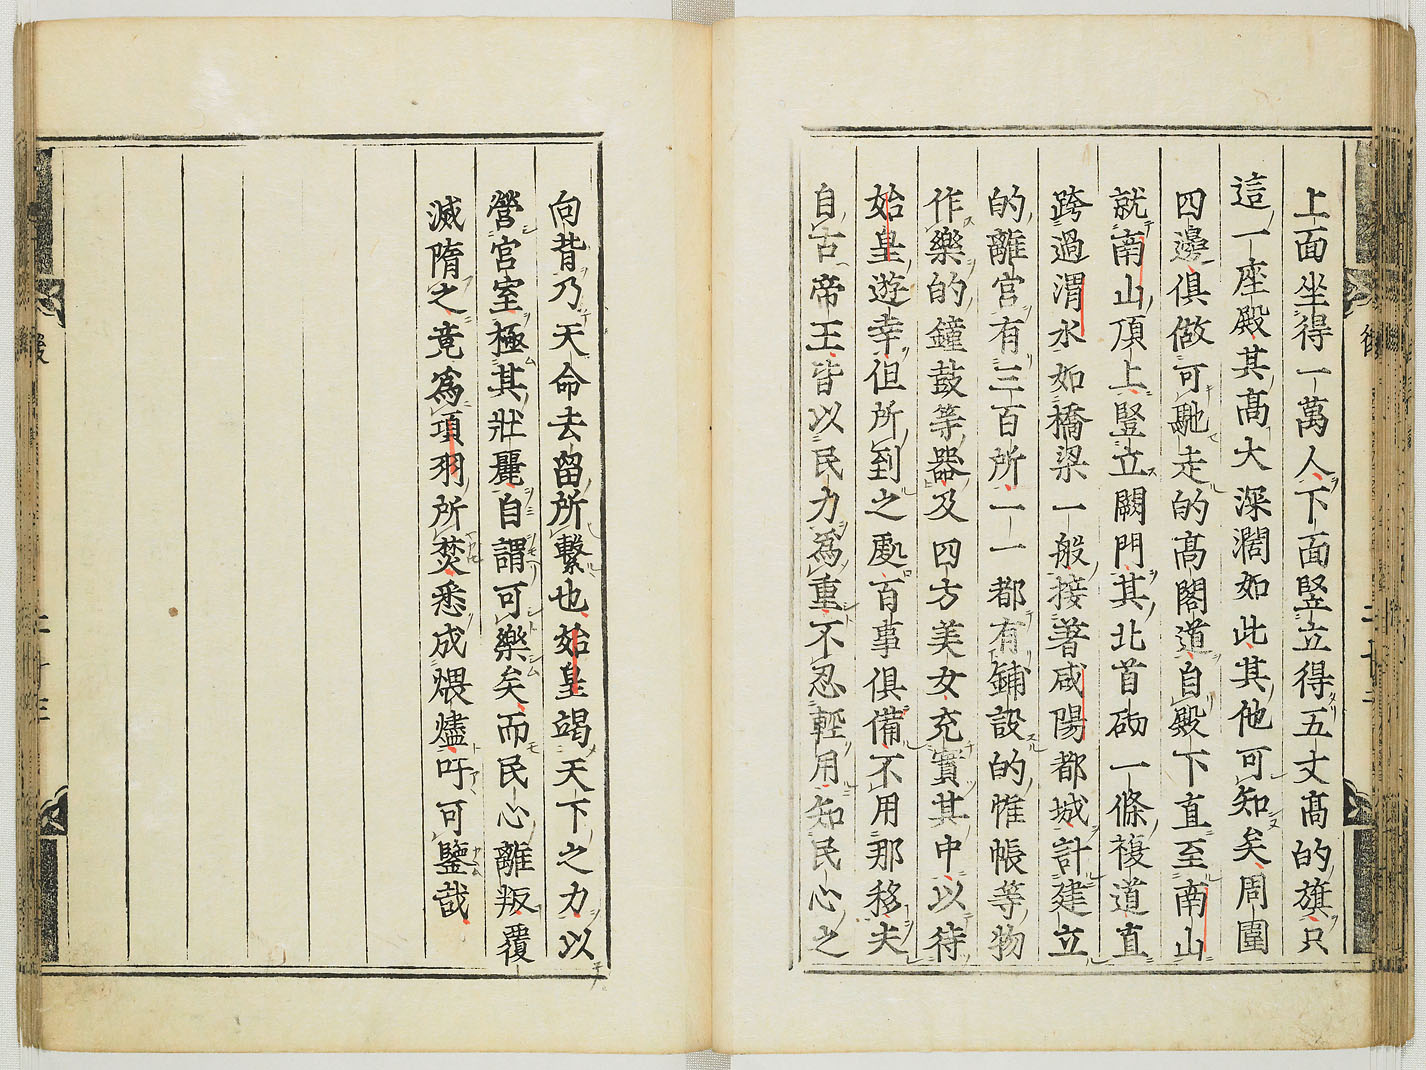 上面坐得一萬人下面竪立得五丈髙的旗只
這一座殿其髙大深濶如此其他可知矣周圍
四邊俱做可馳走的髙閣道自殿下直至南山
就南山頂上竪立闕門其北首砌一條複道直
跨過渭水如橋梁一般接著咸陽都城計建立
的離宮有三百所一一都有鋪設的帷帳等物
作樂的鐘鼓等器及四方美女充實其中以待
始皇遊幸但所到之處百事俱備不用那移夫
自古帝王皆以民力爲重不忍輕用知民心之
向背乃天命去留所繫也始皇竭天下之力以
營宮室極其壯麗自謂可樂矣而民心離叛覆
滅隋之竟爲項羽所焚悉成煨燼吁可鑒哉